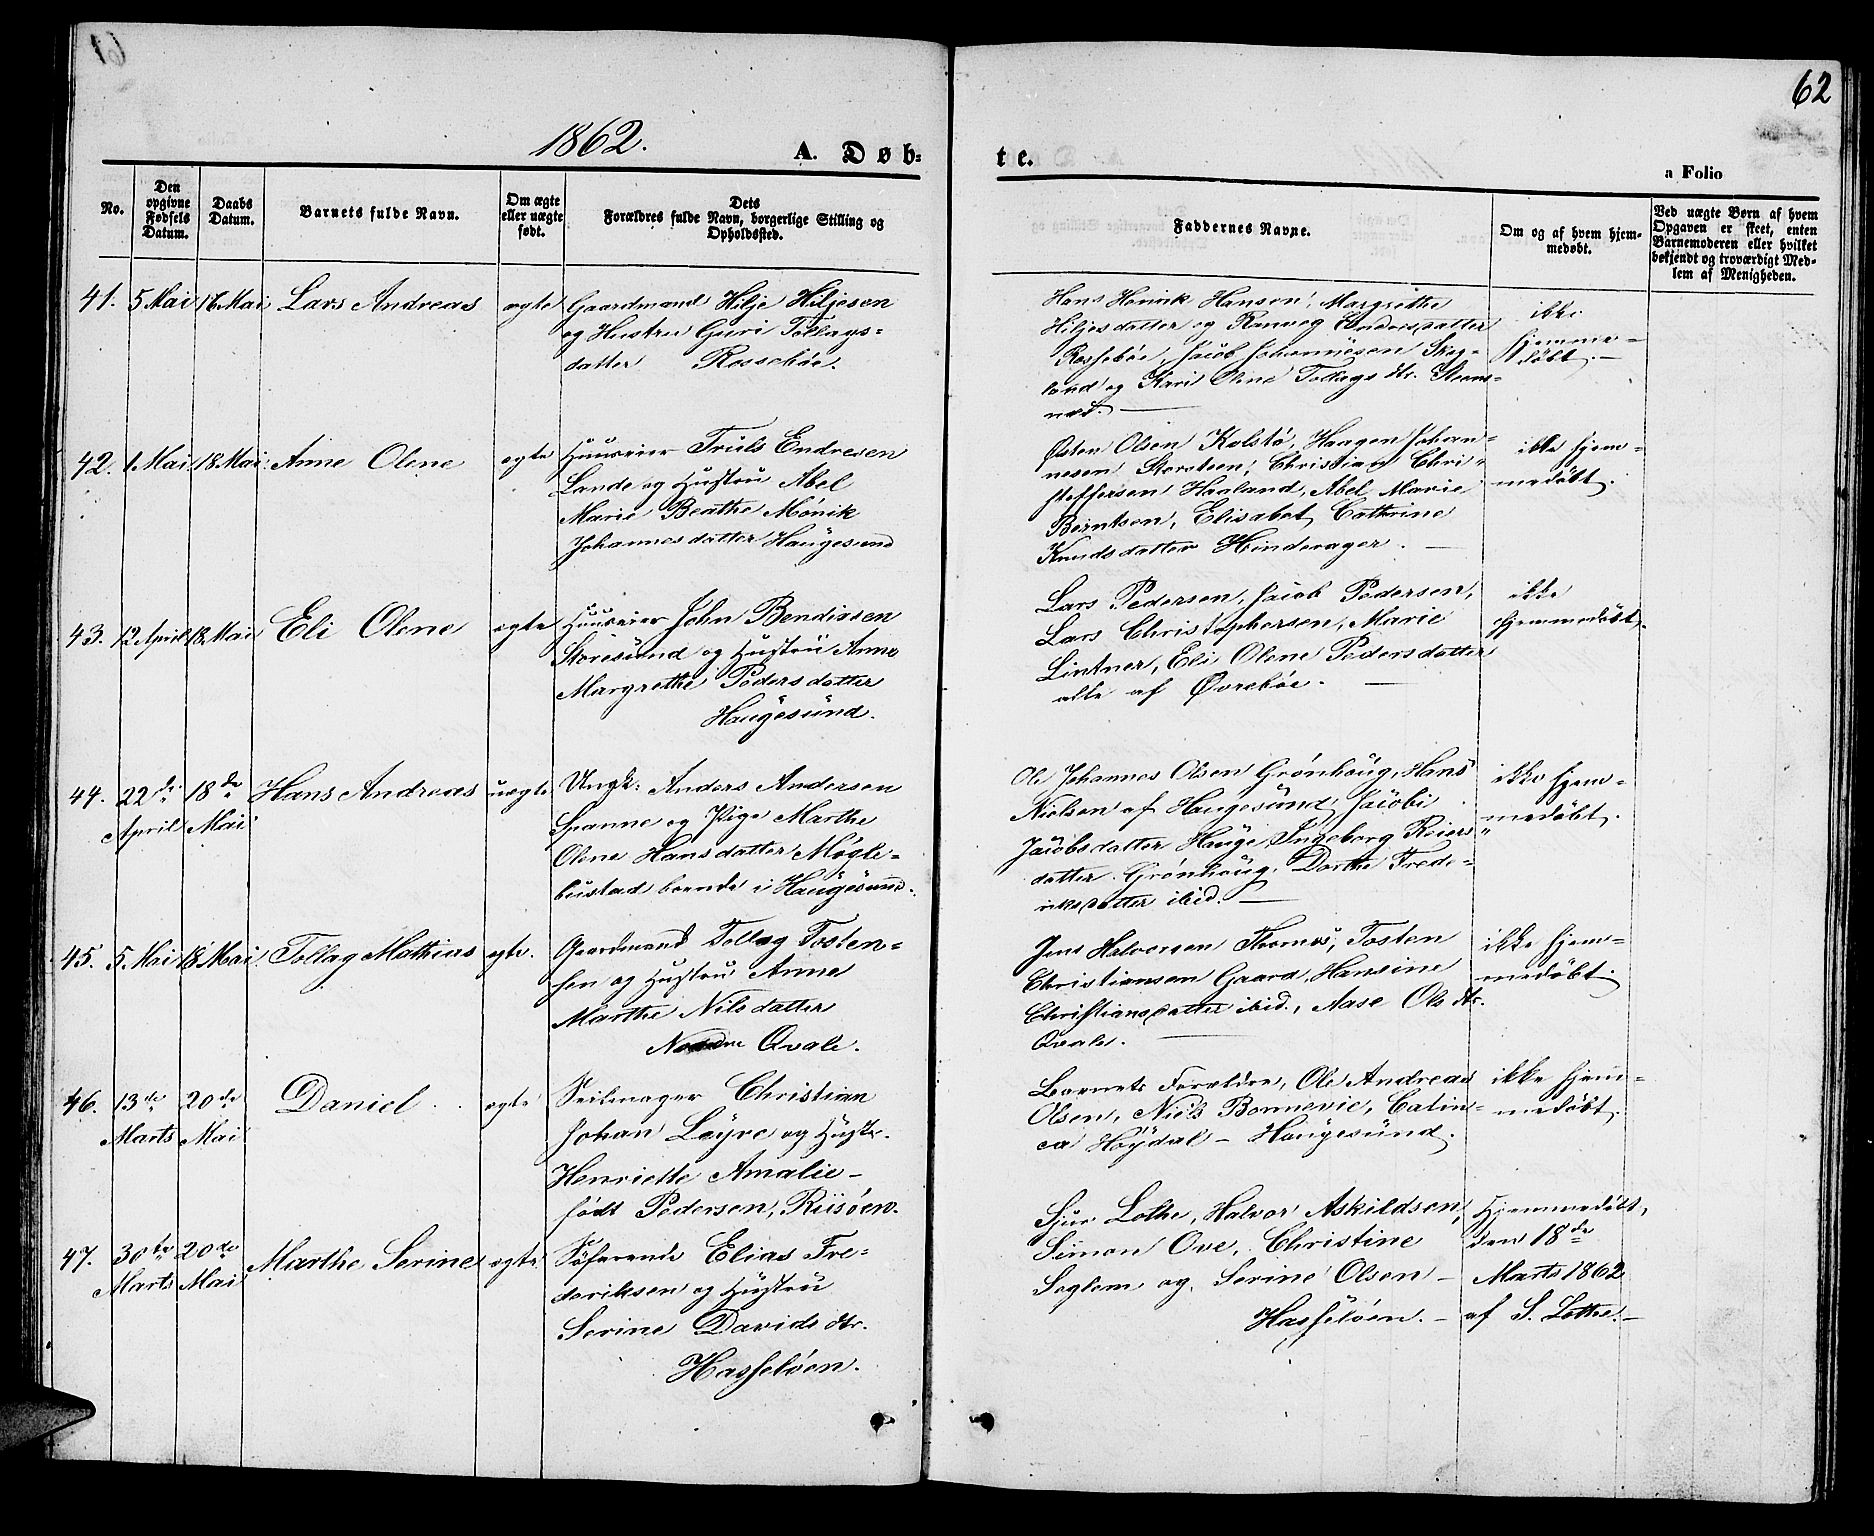 62
1862.
A. Døb=
te.
a Folio
No.
Den
opgivne
Fødsels
Datum.
Daabs
Datum.
Barnets fulde Navn.
Om ægte
eller uægte
født.
Dets
Forældres fulde Navn, borgerlige Stilling og
Opholdssted.
Faddernes Navne.
Om og af hvem hjem-
medøbt.
Ved uægte Børn af hvem
Opgaven er skeet, enten
Barnemoderen eller hvilket
bekjendt og troværdigt Med-
lem af Menigheden.
41. 5 Mai 16 Mai Lars Andreas ægte
Gaardmand Hilje Hiljesen
og Hustru Guri Tollags=
datter Rossebøe.
Hans Hinrik Hansen, Margrethe
Hiljesdatter og Ranveg Endresdatter
Rossebøe, Jacob Johannesen Skog=
land og Kari Oline Tollags dtr. Steens=
næs. —
ikke
hjemme=
døbt. —
42. 1 Mai 18 Mai Anne Olene ægte
Huuseier Truls Endresen
Lande og Hustru Abel
Marie Beathe Mönik
Johannesdatter Haugesund
Østen Olsen Kolstø, Haagen Johan=
nesen Storsteen, Christian Chri=
stoffersen Haaland, Abel Marie
Berntsen, Elisabet Cathrine
Knudsdatter Hinderager. —
ikke hjem=
medøbt.
43. 12 April 18 Mai Eli Olene ægte
Huuseier John Bendixsen
Storesund og Hustru Anne
Margrethe Pedersdatter
Haugesund.
Lars Pedersen, Jacob Pedersen,
Lars Christophersen, Marie
Lintner, Eli Olene Pedersdatter
alle af Øvrebøe. —
ikke
hjemmedøbt.
44. 22de April 18de Mai Hans Andreas uægte
Ungk: Anders Andersen
Spanne og Pige Marthe
Olene Hansdatter Møgle=
bustad boende i Haugesund.
Ole Johannes Olsen Grønhaug, Hans
Nielsen af Haugesund, Jacobi
Jacobsdatter Hauge, Ingeborg Reiers=
datter Grønhaug, Dorthe Frede=
riksdatter ibid. —
ikke hjem=
medøbt.
45. 5 Mai 18 Mai Tollag Mathias ægte.
Gaardmand Tollag Tosten=
sen og Hustru Anne
Marthe Nilsdatter
Nordre Qvale.
Jens Halvorsen Thornæs, Tosten
Christiansen Gaard, Hansine
Christiansdatter ibid., Aase Ols dtr.
Qvale.
ikke hjem=
medøbt.
46. 13de Marts 20de Mai Daniel ægte
Seilmager Christian
Johan Løyre og Hustr.
Henriette Amalie —
født Pedersen, Riisøen.
Barnets Forældre, Ole Andreas
Olsen, Niels Bonnevie, Catin=
ca Høydal — Haugesund.
ikke hjem=
medøbt.
47. 30te Marts 20de Mai Marthe Serine ægte
Søfarende Elias Fre=
deriksen og Hustru
Serine Davids dtr.
Hasseløen.
Sjur Lothe, Halvor Askildsen,
Simon Ove, Christine
Seglem og Serine Olsen —
Hasseløen. —
Hjemmedøbt
den 18de
Marts 1862
af S. Lothe. —